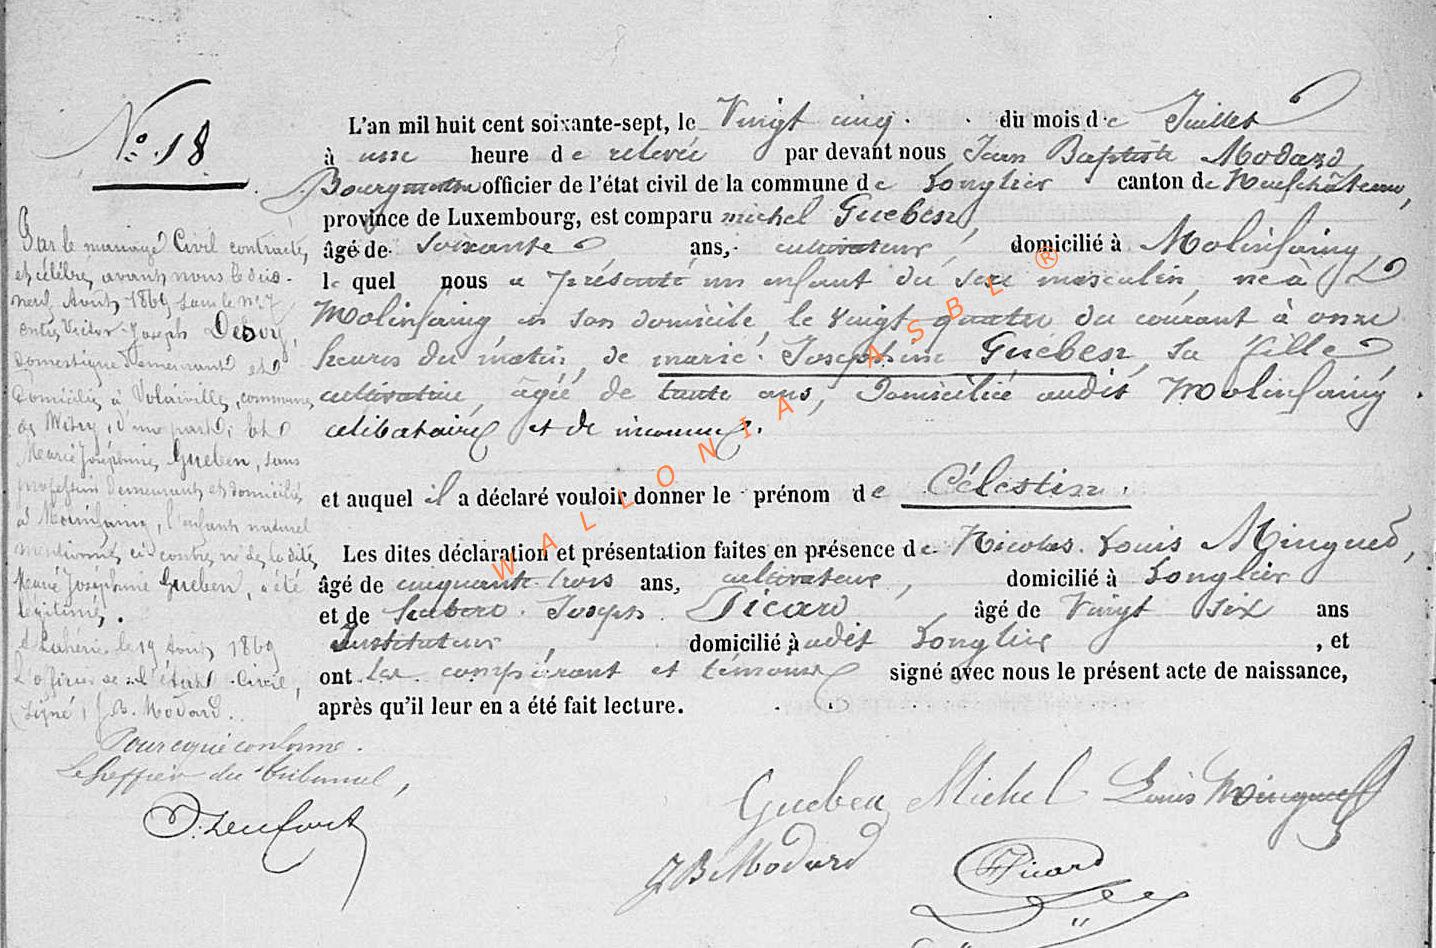 N° 18
L'an mil huit cent soixante-sept, le Vingt cinq du mois de Juillet
à une heure de relevée par devant nous Jean Baptiste Modard
Bourgmestre officier de l'état civil de la commune de Longlier canton de Neufchâteau,
province de Luxembourg, est comparu michel Gueben,
âgé de soixante ans, cultivateur, domicilié à Molinfaing,
lequel nous a présenté un enfant du sexe masculin, né à
Molinfaing en son domicile, le vingt quatre du courant à onze
heures du matin, de marie Joséphine Gueben, sa fille
cultivatrice, âgée de trente ans, Domiciliée audit Molinfaing,
célibataire et de inconnu.
et auquel il a déclaré vouloir donner le prénom de Célestin.
Les dites déclaration et présentation faites en présence de Nicolas Louis Minguet,
âgé de cinquante trois ans, cultivateur, domicilié à Longlier
et de Hubert Joseph Picard âgé de Vingt six ans
Instituteur, domicilié à udit Longlier, et
ont les comparant et témoins signé avec nous le présent acte de naissance,
après qu'il leur en a été fait lecture.
Par le mariage Civil contracté,
et célébré, avant nous le dix-
neuf Août 1869, sous le n° 7
entre Victor Joseph Debuy,
domestique demeurant et
Domicilié à Volaiville, commune
de Witry, d'une part, et
Marie Joséphine Gueben, sans
profession demeurant et domiciliée
à Molinfaing, l'enfant naturel
mentionné ci contre né de la dite
Marie Joséphine Gueben, a été
légitimé.
Lahérie le 19 Août 1869
L'officier de l'état Civil,
(signé) J.B. Modard.
Pour copie conforme.
Le Greffier du tribunal,
Gueben Michel Louis Minguet
JB Modard Picard
WALLONIA ASBL ®